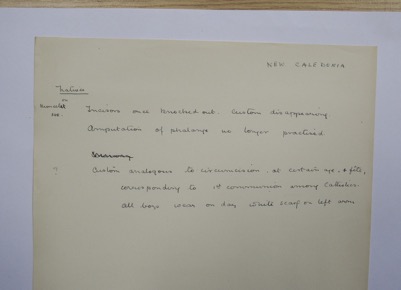 NEW CALEDONIA
Incisors once knocked out. Custom disappearing
Amputation of phalanx no longer practised
?
Custom analogous to circumcision at certain age, & fête,
corresponding to 1st communion among Catholics.
All boys wear on day white scarf on left arm